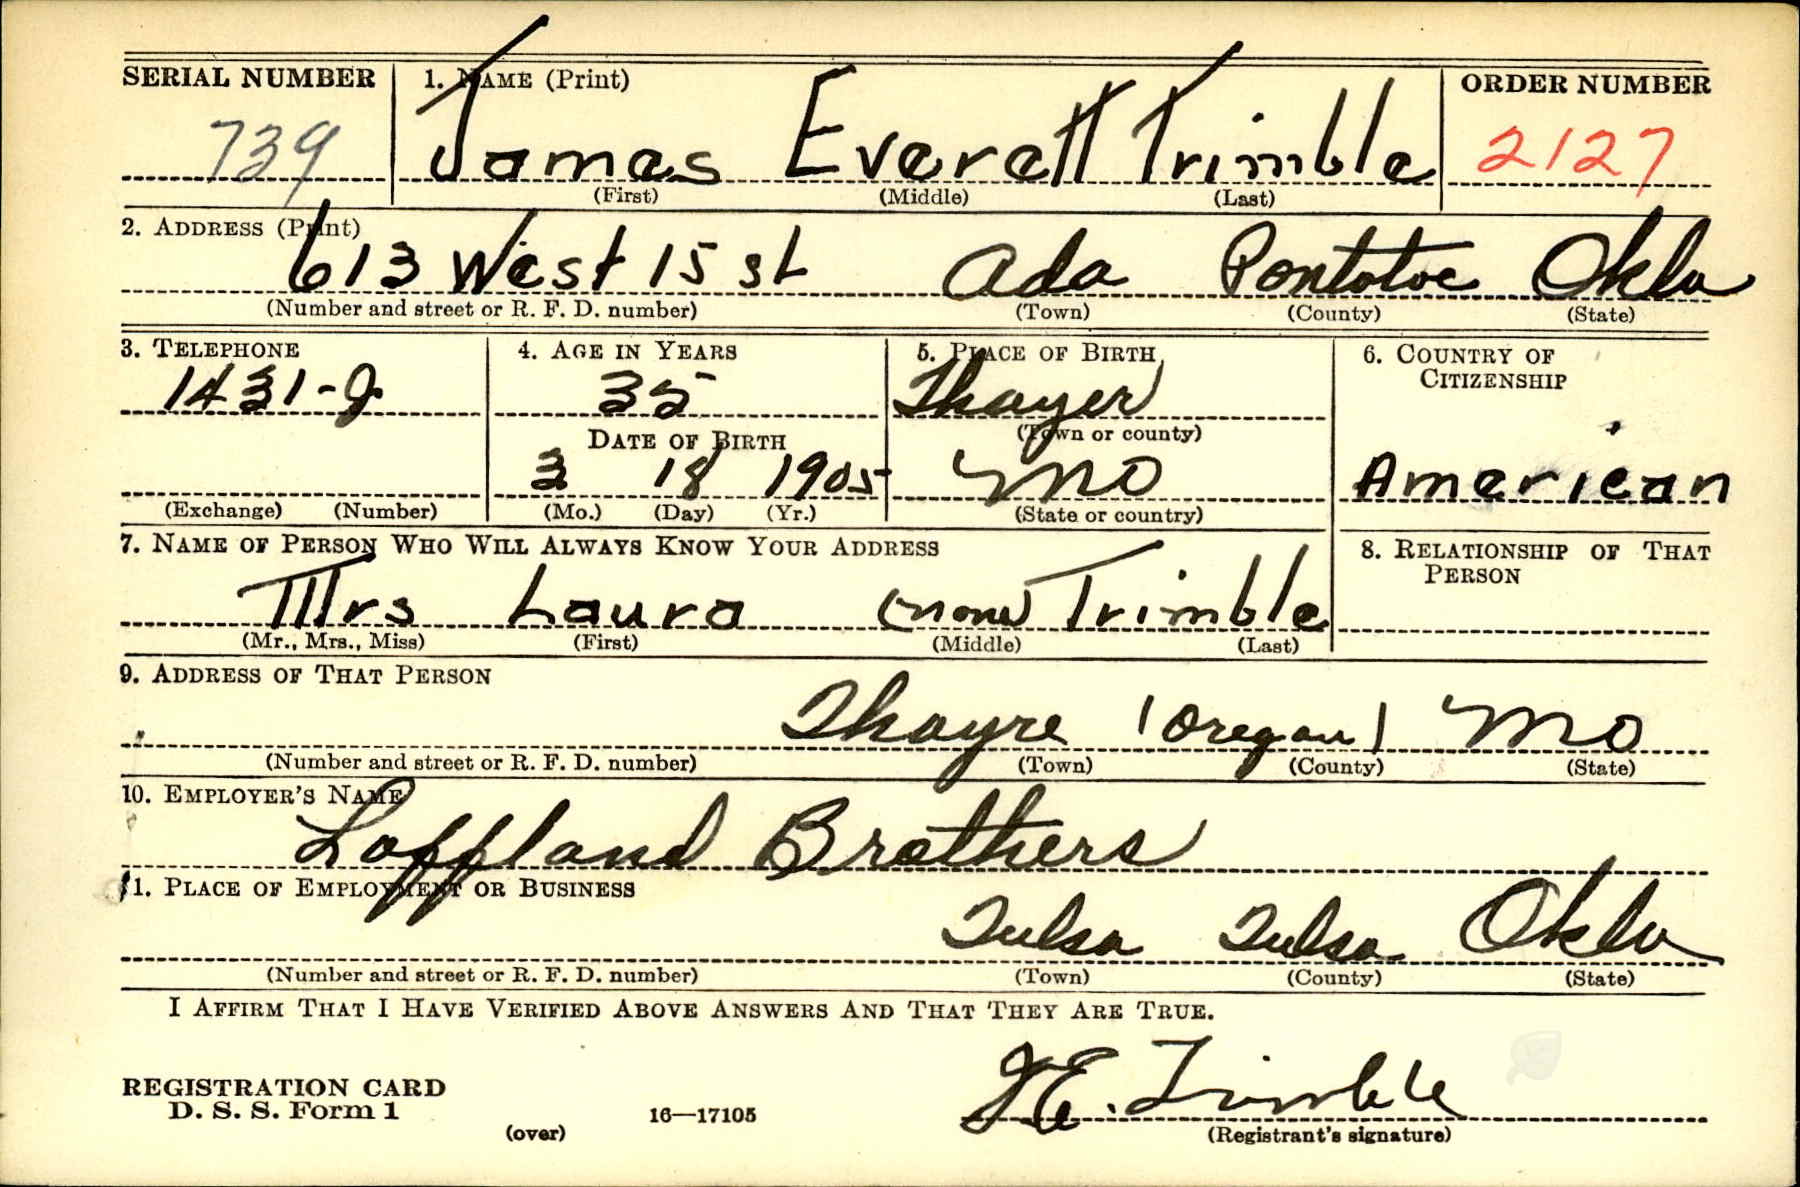 SERIAL NUMBER 1. NAME (Print) ORDER NUMBER
739 James Everett Trimble 2127
(First) (Middle) (Last)
2. ADDRESS (Print)
613 West 15 st Ada Pontotoc Okla
(Number and street or R. F. D. number) (Town) (County) (State)
3. TELEPHONE 4. AGE IN YEARS 5. PLACE OF BIRTH 6. COUNTRY OF CITIZENSHIP
1431-J 35 Thayer
(Town or county)
DATE OF BIRTH
3 18 1905 Mo American
(Exchange) (Number) (Mo.) (Day) (Yr.) (State or country)
7. NAME OF PERSON WHO WILL ALWAYS KNOW YOUR ADDRESS 8. RELATIONSHIP OF THAT PERSON
Mrs Laura (none) Trimble
(Mr., Mrs., Miss) (First) (Middle) (Last)
9. ADDRESS OF THAT PERSON
Thayre (Oregon) Mo
(Number and street or R. F. D. number) (Town) (County) (State)
10. EMPLOYER'S NAME
Loffland Brothers
11. PLACE OF EMPLOYMENT OR BUSINESS
Tulsa Tulsa Okla
(Number and street or R. F. D. number) (Town) (County) (State)
I AFFIRM THAT I HAVE VERIFIED ABOVE ANSWERS AND THAT THEY ARE TRUE.
J E. Trimble
REGISTRATION CARD
D. S. S. Form 1 (over) 16—17105 (Registrant's signature)